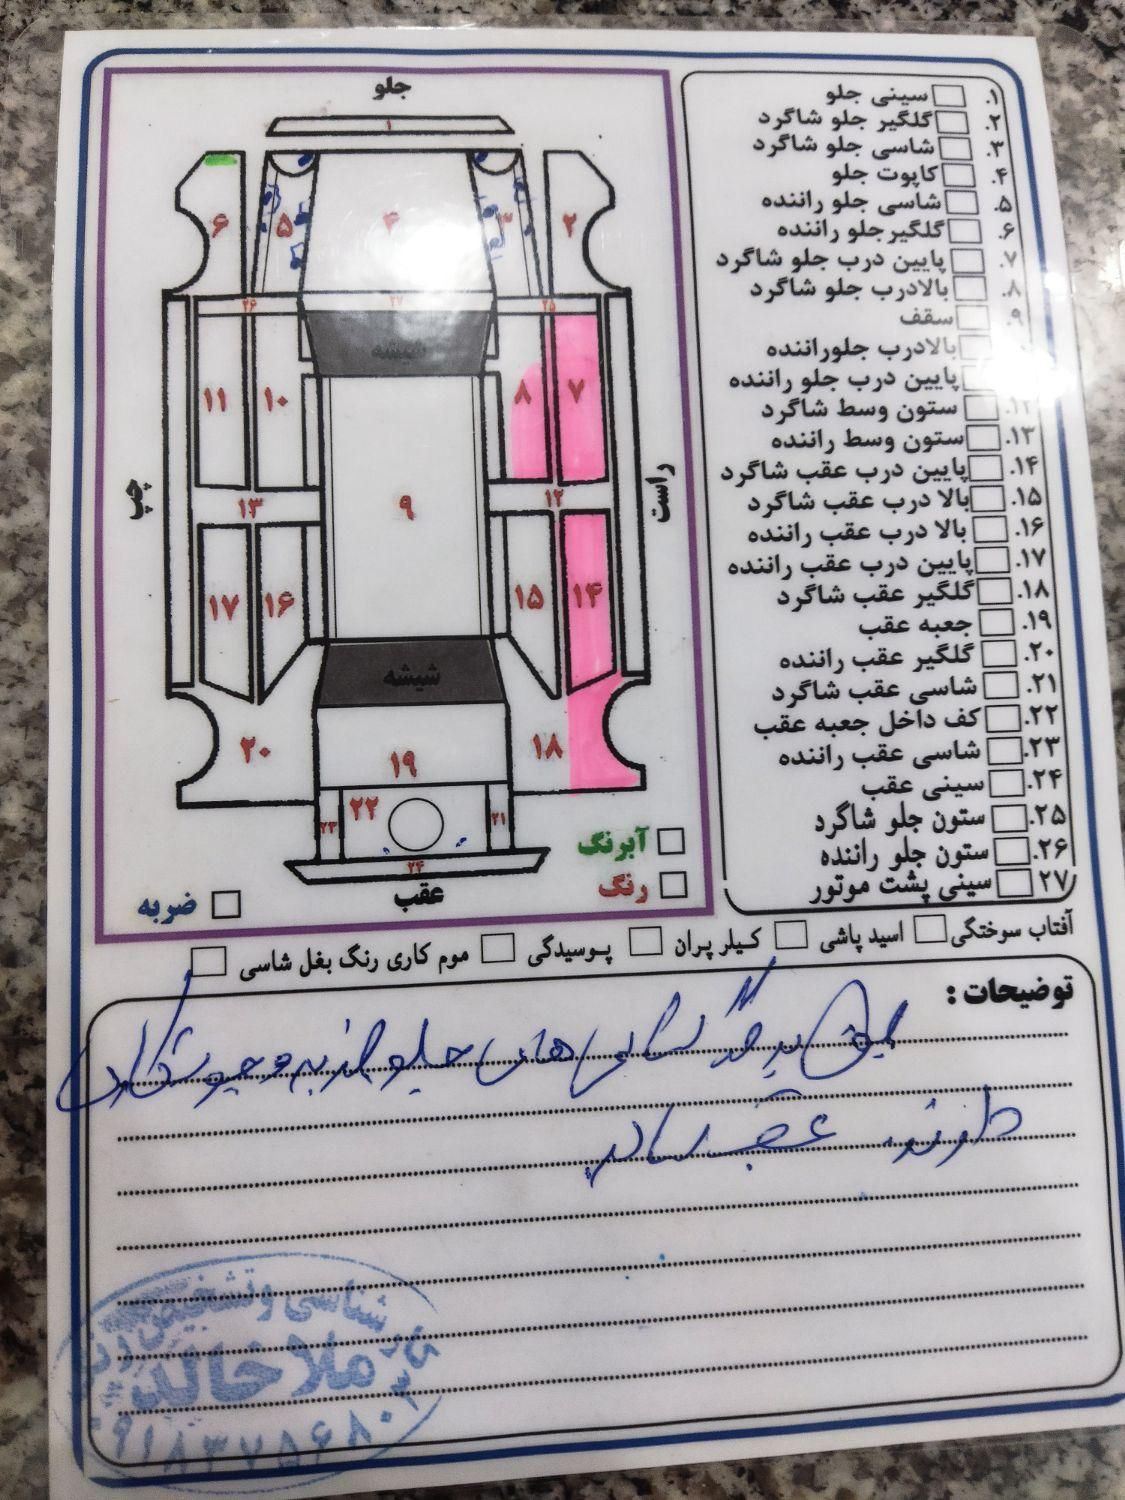 جلو
۱
۶
۵
۴
۳
۲
۲۶
۲۷
۲۵
شیشه
۱۱
۱۰
۸
۷
چپ
راست
۱۳
۹
۱۲
۱۷
۱۶
۱۵
۱۴
شیشه
۲۰
۱۹
۱۸
۲۳
۲۲
۲۱
۲۴
عقب
آبرنگ
رنگ
ضربه
۱. سینی جلو
۲. گلگیر جلو شاگرد
۳. شاسی جلو شاگرد
۴. کاپوت جلو
۵. شاسی جلو راننده
۶. گلگیر جلو راننده
۷. پایین درب جلو شاگرد
۸. بالادرب جلو شاگرد
۹. سقف
بالادرب جلوراننده
پایین درب جلو راننده
۱۲. ستون وسط شاگرد
۱۳. ستون وسط راننده
۱۴. پایین درب عقب شاگرد
۱۵. بالا درب عقب شاگرد
۱۶. بالا درب عقب راننده
۱۷. پایین درب عقب راننده
۱۸. گلگیر عقب شاگرد
۱۹. جعبه عقب
۲۰. گلگیر عقب راننده
۲۱. شاسی عقب شاگرد
۲۲. کف داخل جعبه عقب
۲۳. شاسی عقب راننده
۲۴. سینی عقب
۲۵. ستون جلو شاگرد
۲۶. ستون جلو راننده
۲۷. سینی پشت موتور
آفتاب سوختگی اسید پاشی کیلر پران پوسیدگی موم کاری رنگ بغل شاسی
توضیحات :
های جلو
دارند عقب سالم
شناسی و تشخیص رنگ
ملا خالد